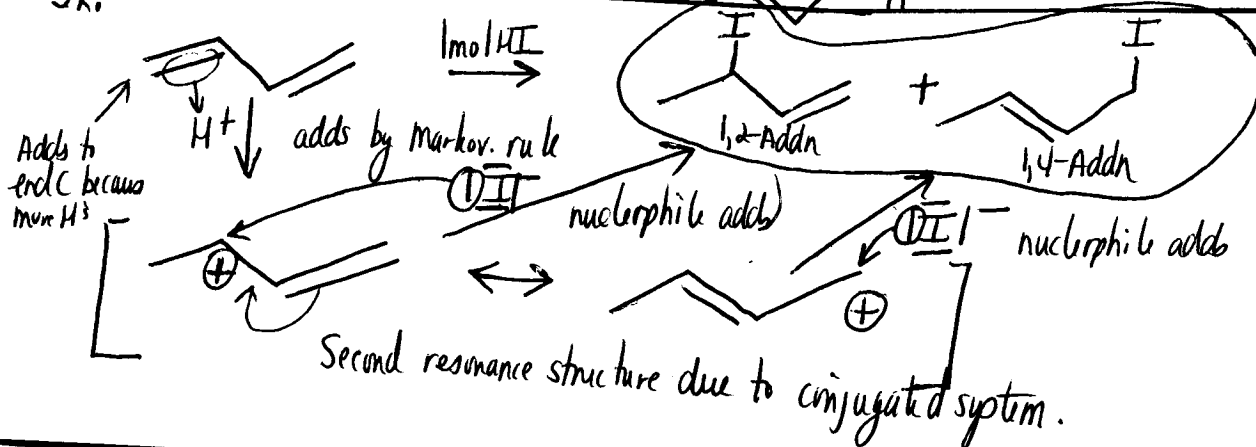 I I
1mol HI
+
1,2-Addn 1,4-Addn
H+ adds by Markov. rule
Adds to
end C because
more H's
I nucleophile adds I − nucleophile adds
+ +
Second resonance structure due to conjugated system.